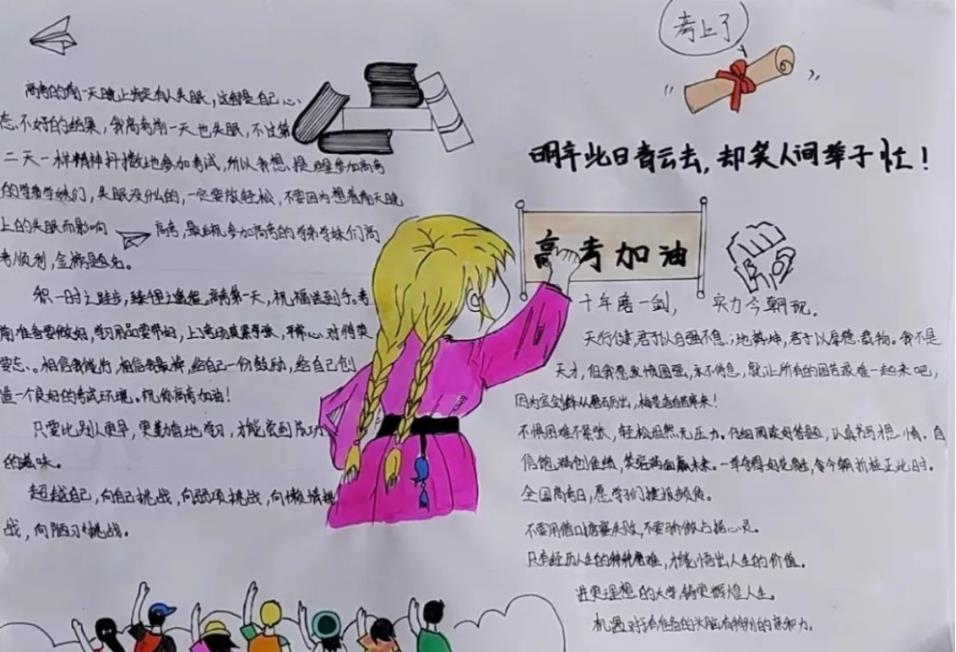 考上了
高考的前一天晚上肯定有人失眠，这都是自己心
态不好的结果，我高考前一天也失眠，不过第
二天一样精神抖擞地参加考试，所以我想提醒参加高考
的学弟学妹们，失眠没什么的，一定要放轻松，不要因为想着前天晚
上的失眠而影响高考，最后祝参加高考的学弟学妹们高
考顺利，金榜题名。
积一时之跬步，臻千里之遥程。高考第一天，祝福送到手。考
前准备要做好，学习用品要带好，上考场莫紧张，平常心对待类
要态。相信我能行，相信我最棒，给自己一份鼓励，给自己创
造一个良好的考试环境。祝你高考加油！
只要比别人更早，更勤奋地学习，才能尝到成功
的滋味。
超越自己，向自己挑战，向弱项挑战，向懒惰挑
战，向陋习挑战。
明年此日青云去，却笑人间举子忙！
高考加油
十年磨一剑，实力今朝现。
天行健，君子以自强不息；地势坤，君子以厚德载物。我不是
天才，但我愿发愤图强，永不停息，就让所有的困苦艰难一起来吧，
因为宝剑锋从磨砺出，梅花香自苦寒来！
不惧困难不紧张，轻松坦然无压力。仔细阅读好答题，认真书写才想情。自
信饱满创佳绩，笑容满面赢未来。
全国高考日，愿学子们捷报频传。
不要用借口搪塞失败，不要骄傲占据心灵。
只有经历人生的种种磨难，才能悟出人生的价值。
进更理想的大学铸更辉煌人生。
机遇对于有准备的头脑有特别的亲和力。